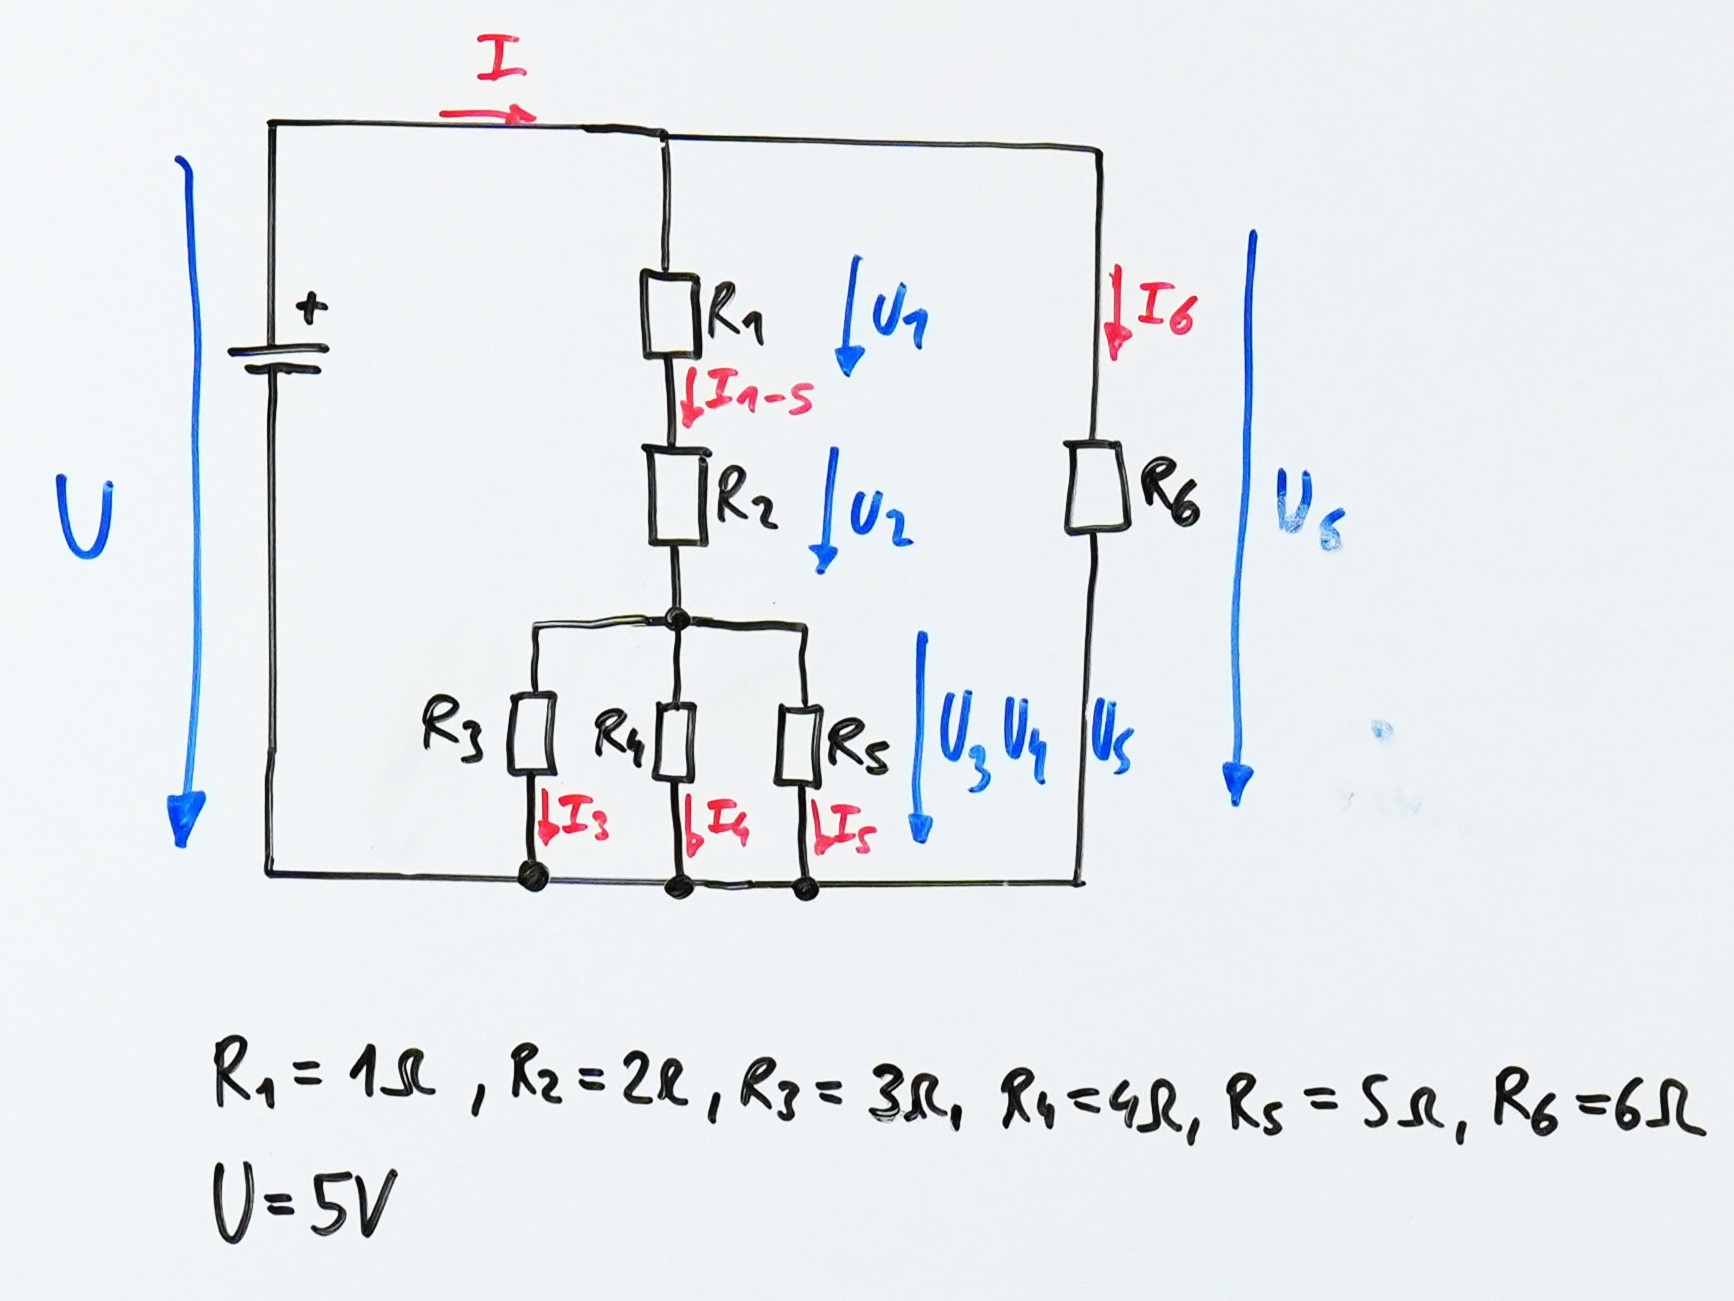 I
+
R1
U1
I6
I1-5
U
R2
U2
R6
U6
R3
R4
R5
U3 U4 U5
I3
I4
I5
R1 = 1Ω , R2 = 2Ω, R3 = 3Ω, R4 = 4Ω, R5 = 5Ω, R6 = 6Ω
U = 5V